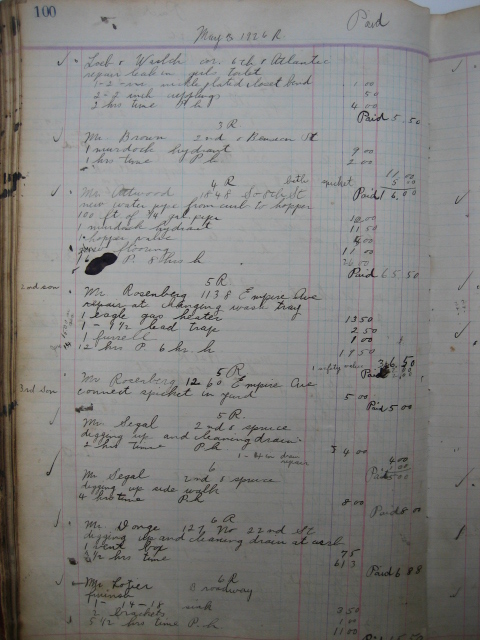 100
May 3 1926 R
Paid
Loeb & Walsh cor. 6th & Atlantic
repair leak in girls toilet
1-2 in nickle plated closet bend 1 00
2-2 inch 50
2 hrs time P h 4 00
Paid 5 50
3 R
Mr. Brown 2nd & Benson St
1 murdock hydrant 9 00
1 hrs time P h 2 00
11 00
bath spicket 5 00
Paid 16 00
4 R
Mr. Attwood 1848 So 8th St
new water pipe from curb to hopper
100 ft of 3/4 gal pipe 10 00
1 murdock hydrant 11 50
1 hopper valve 4 00
new flooring 11 00
P. 8 hrs h 26 00
Paid 65 50
2nd son
5 R
Mr. Rosenberg 1138 Empire Ave
repair at changing wash tray
1 eagle gas heater 13 50
1 - 4 1/2 lead trap 2 50
1 funnell 1 00
12 hrs P. 6 hrs h 17 50
1 safety valve
36 50
Paid
3rd son
5 R
Mr. Rosenberg 1260 Empire Ave
connect spicket in yard 5 00
Paid 5 00
5 R.
Mr. Segal 2nd & spruce
digging up and cleaning drain
2 hrs time P h $ 4 00
drain repair
4 00
1 00
Paid 5 00
6
Mr Segal 2nd & spruce
digging up side walk
4 hrs time P h 8 00
Paid 8 00
6 R
Mr. Donge 127 No 22nd St
digging up and cleaning drain at curb
1 vent box 75
3 1/2 hrs time 6 13
Paid 6 88
6 R
Mr. Lotier Broadway
furnish
1- 14-18 sink 3 50
2 brackets 1 00
5 1/2 hrs time P. h 11 00